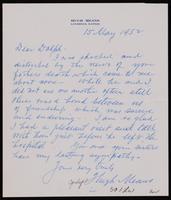 HUGH MEANS
LAWRENCE, KANSAS
15 May 1952
Dear Dolph:
I was shocked and
disturbed by the news of your
father's death which came at noon
about noon. While he and I
did not see one another often still
there was a bond between us
of friendship which was sincere
and enduring. I am so glad
I had a pleasant visit and talk
with him just before he left the
hospital. You and your sisters
have my lasting sympathy.
Yours very truly
Hugh Means